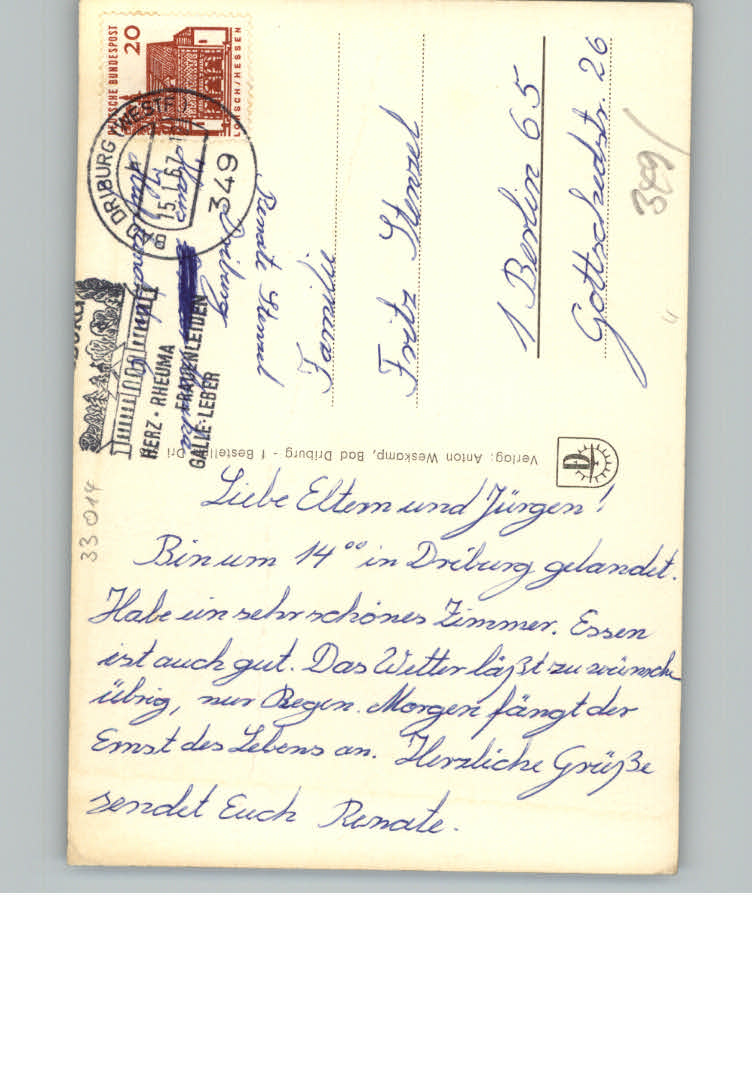 DEUTSCHE BUNDESPOST
20
LORSCH/HESSEN
BAD DRIBURG (WESTF)
15.1.67
349
HERZ · RHEUMA
FRAUENLEIDEN
GALLE·LEBER
Renate Stenzel
Driburg
Haus
Familie
Fritz Stenzel
1 Berlin 65
Gottschedstr. 26
349
33 014
Verlag: Anton Weskamp, Bad Driburg - 1 Bestell
D
Liebe Eltern und Jürgen!
Bin um 14⁰⁰ in Driburg gelandet.
Habe ein sehr schönes Zimmer. Essen
ist auch gut. Das Wetter läßt zu wünsche
übrig, nur Regen. Morgen fängt der
Ernst des Lebens an. Herzliche Grüße
sendet Euch Renate.